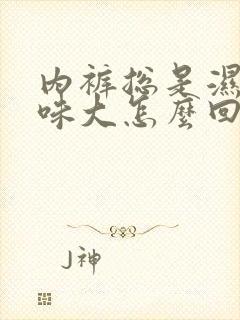 内裤总是濕
味大怎麼回
J神